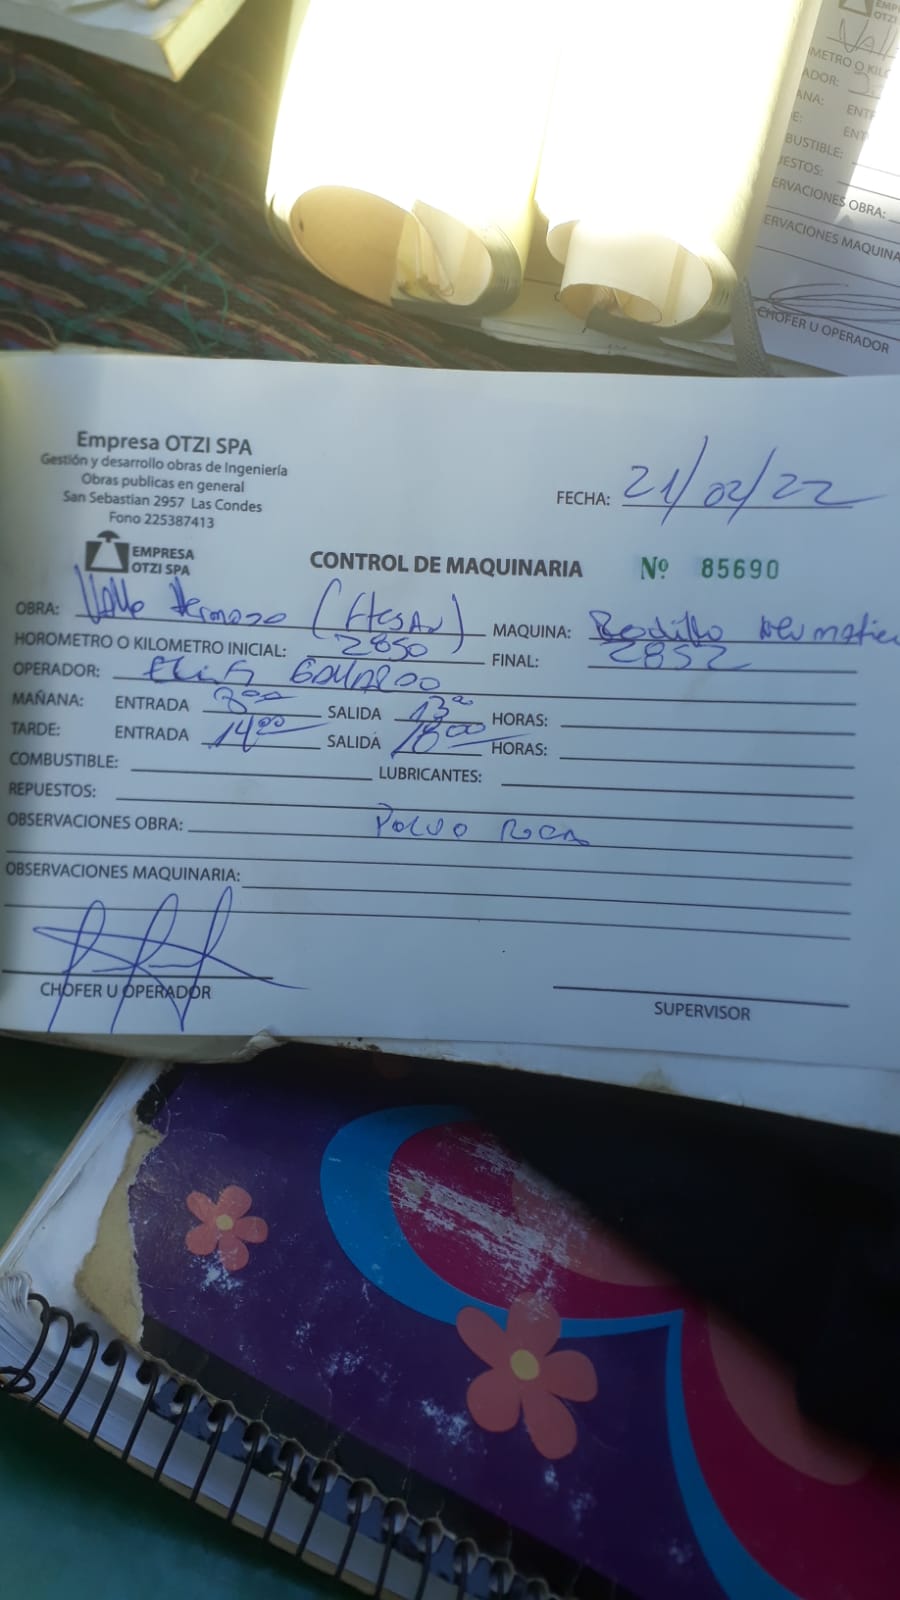 EMP
OTZI
METRO O KIL
ADOR:
ANA: ENT
E: ENT
BUSTIBLE:
UESTOS:
ERVACIONES OBRA:
ERVACIONES MAQUINA
CHOFER U OPERADOR
Empresa OTZI SPA
Gestión y desarrollo obras de Ingeniería
Obras publicas en general
San Sebastian 2957 Las Condes
Fono 225387413
FECHA: 21/02/22
EMPRESA
OTZI SPA
CONTROL DE MAQUINARIA Nº 85690
OBRA: Valle Hermoso ( ) MAQUINA: Rodillo Neumatico
HOROMETRO O KILOMETRO INICIAL: 2850 FINAL: 2852
OPERADOR:
MAÑANA: ENTRADA 8:00 SALIDA 13:00 HORAS:
TARDE: ENTRADA 14:00 SALIDA 18:00 HORAS:
COMBUSTIBLE: LUBRICANTES:
REPUESTOS:
OBSERVACIONES OBRA: Polvo Roca
OBSERVACIONES MAQUINARIA:
CHOFER U OPERADOR
SUPERVISOR